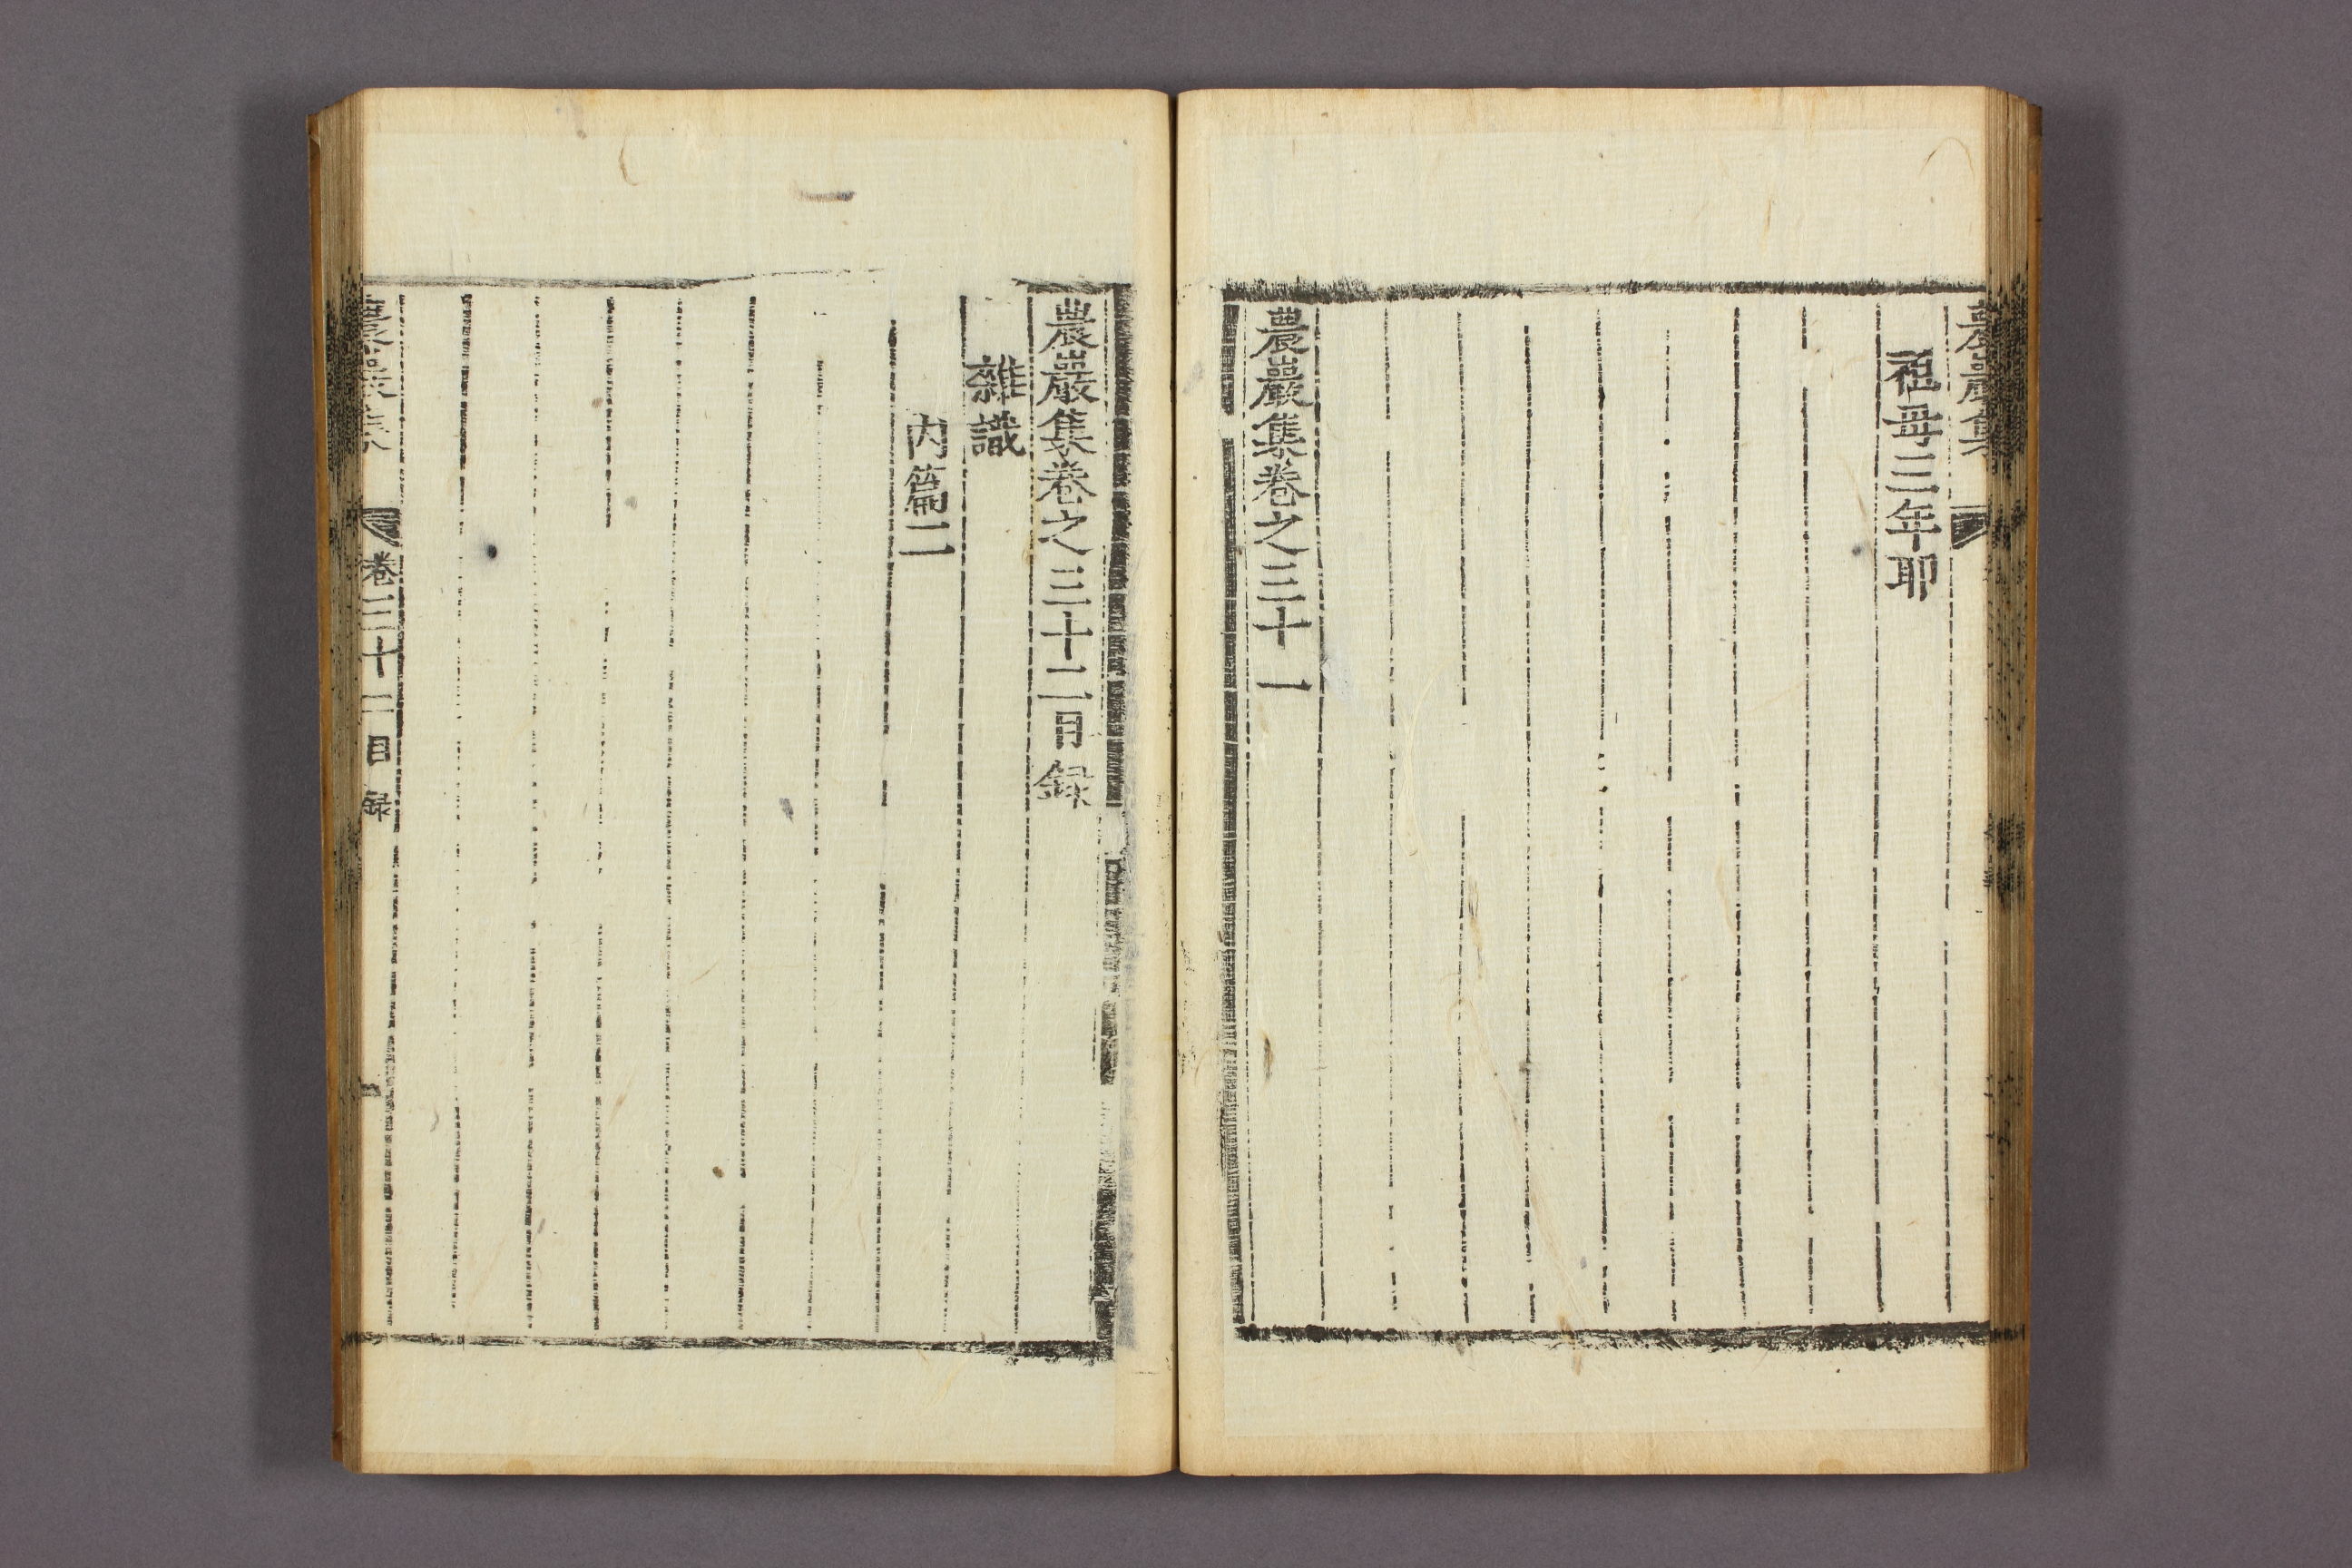 農巖集
祖母三年耶
農巖集卷之三十一
農巖集卷之三十二目録
雜識
内篇二
農巖集
卷三十二目録